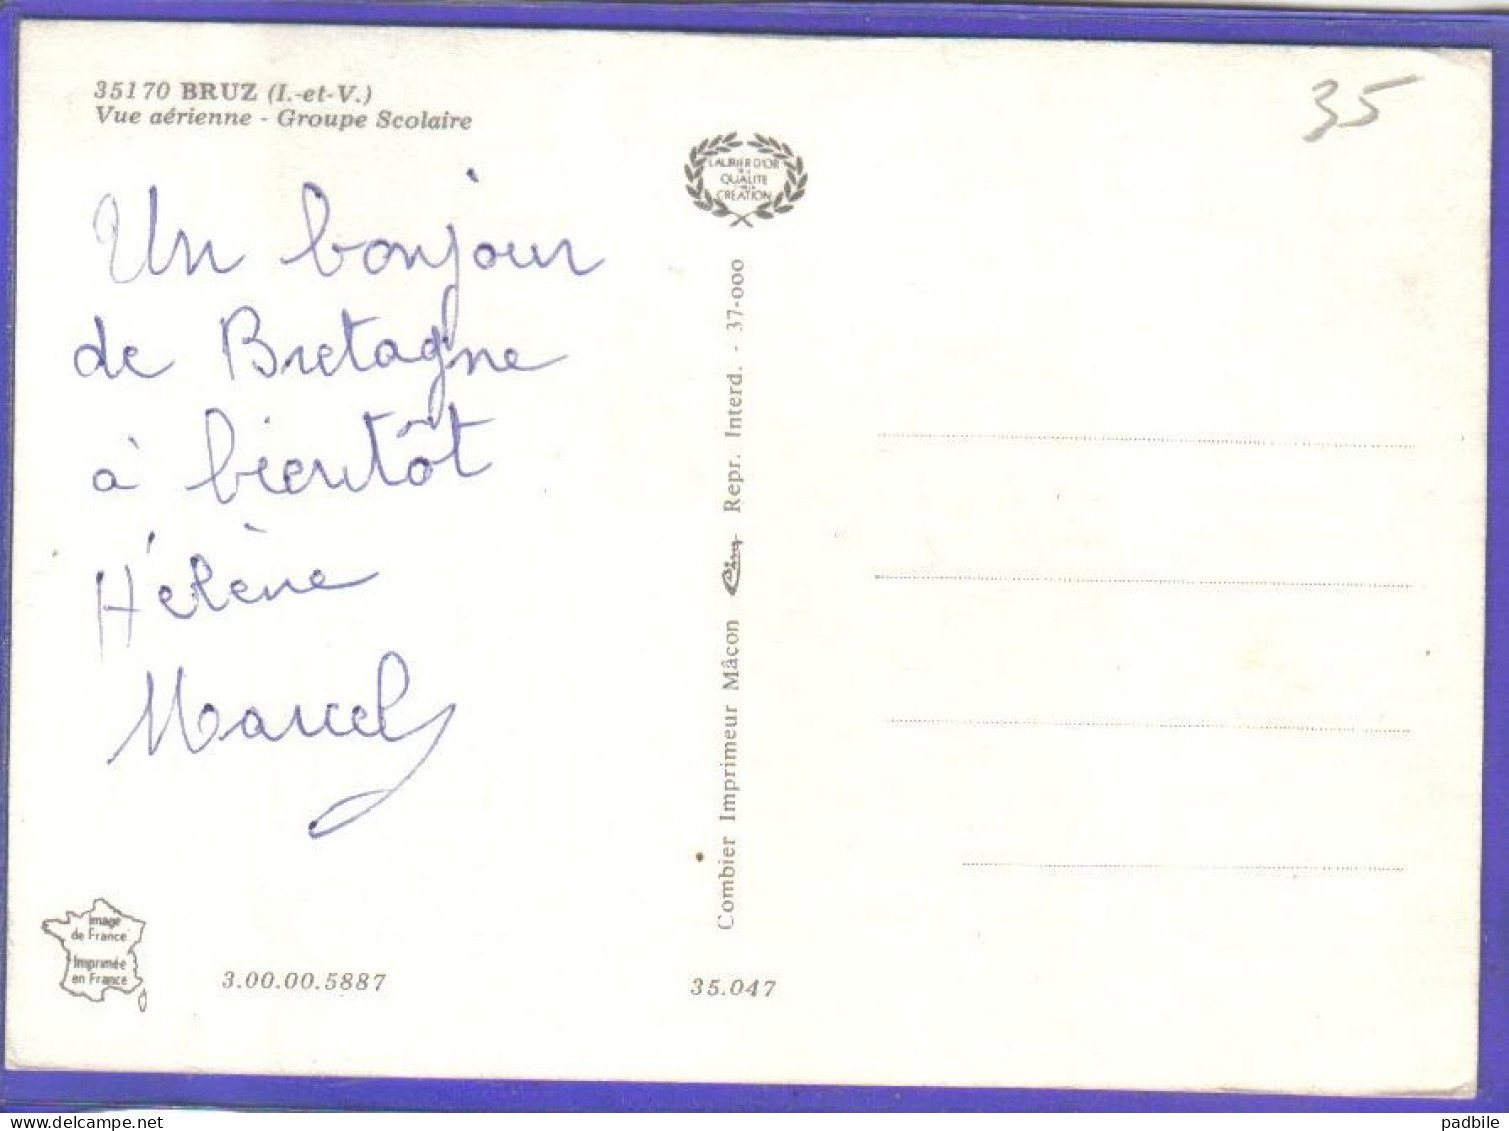 35170 BRUZ (I.-et-V.)
Vue aérienne - Groupe Scolaire
35
LAURIER D'OR
DE LA
QUALITE
CREATION
Un bonjour
de Bretagne
à bientôt
Hélène
Marcel
Combier Imprimeur Mâcon Cim Repr. Interd. - 37-000
Image
de France
Imprimée
en France
3.00.00.5887
35.047
delcampe.net
padbile